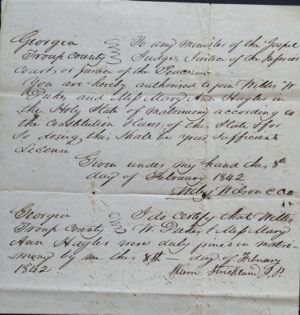 Georgia To any Minister of the Gospel
Troup County Judge, Justice of the Inferior
Court, or Justice of the Peace
You are hereby authorised to join Willis W
and Miss Mary Ann Hagler in
the Holy State of matrimony according to
the Constitution & Laws, of this State & for
So doing this Shall be your Sufficient
License
Given under my hand this 8th
day of February 1842
Wilson C C O
Georgia I do certify that Willis
Troup County W. & Miss Mary
Ann Hagler were duly joined in matri-
mony by me this 8th day of February
1842 Strickland J.P.